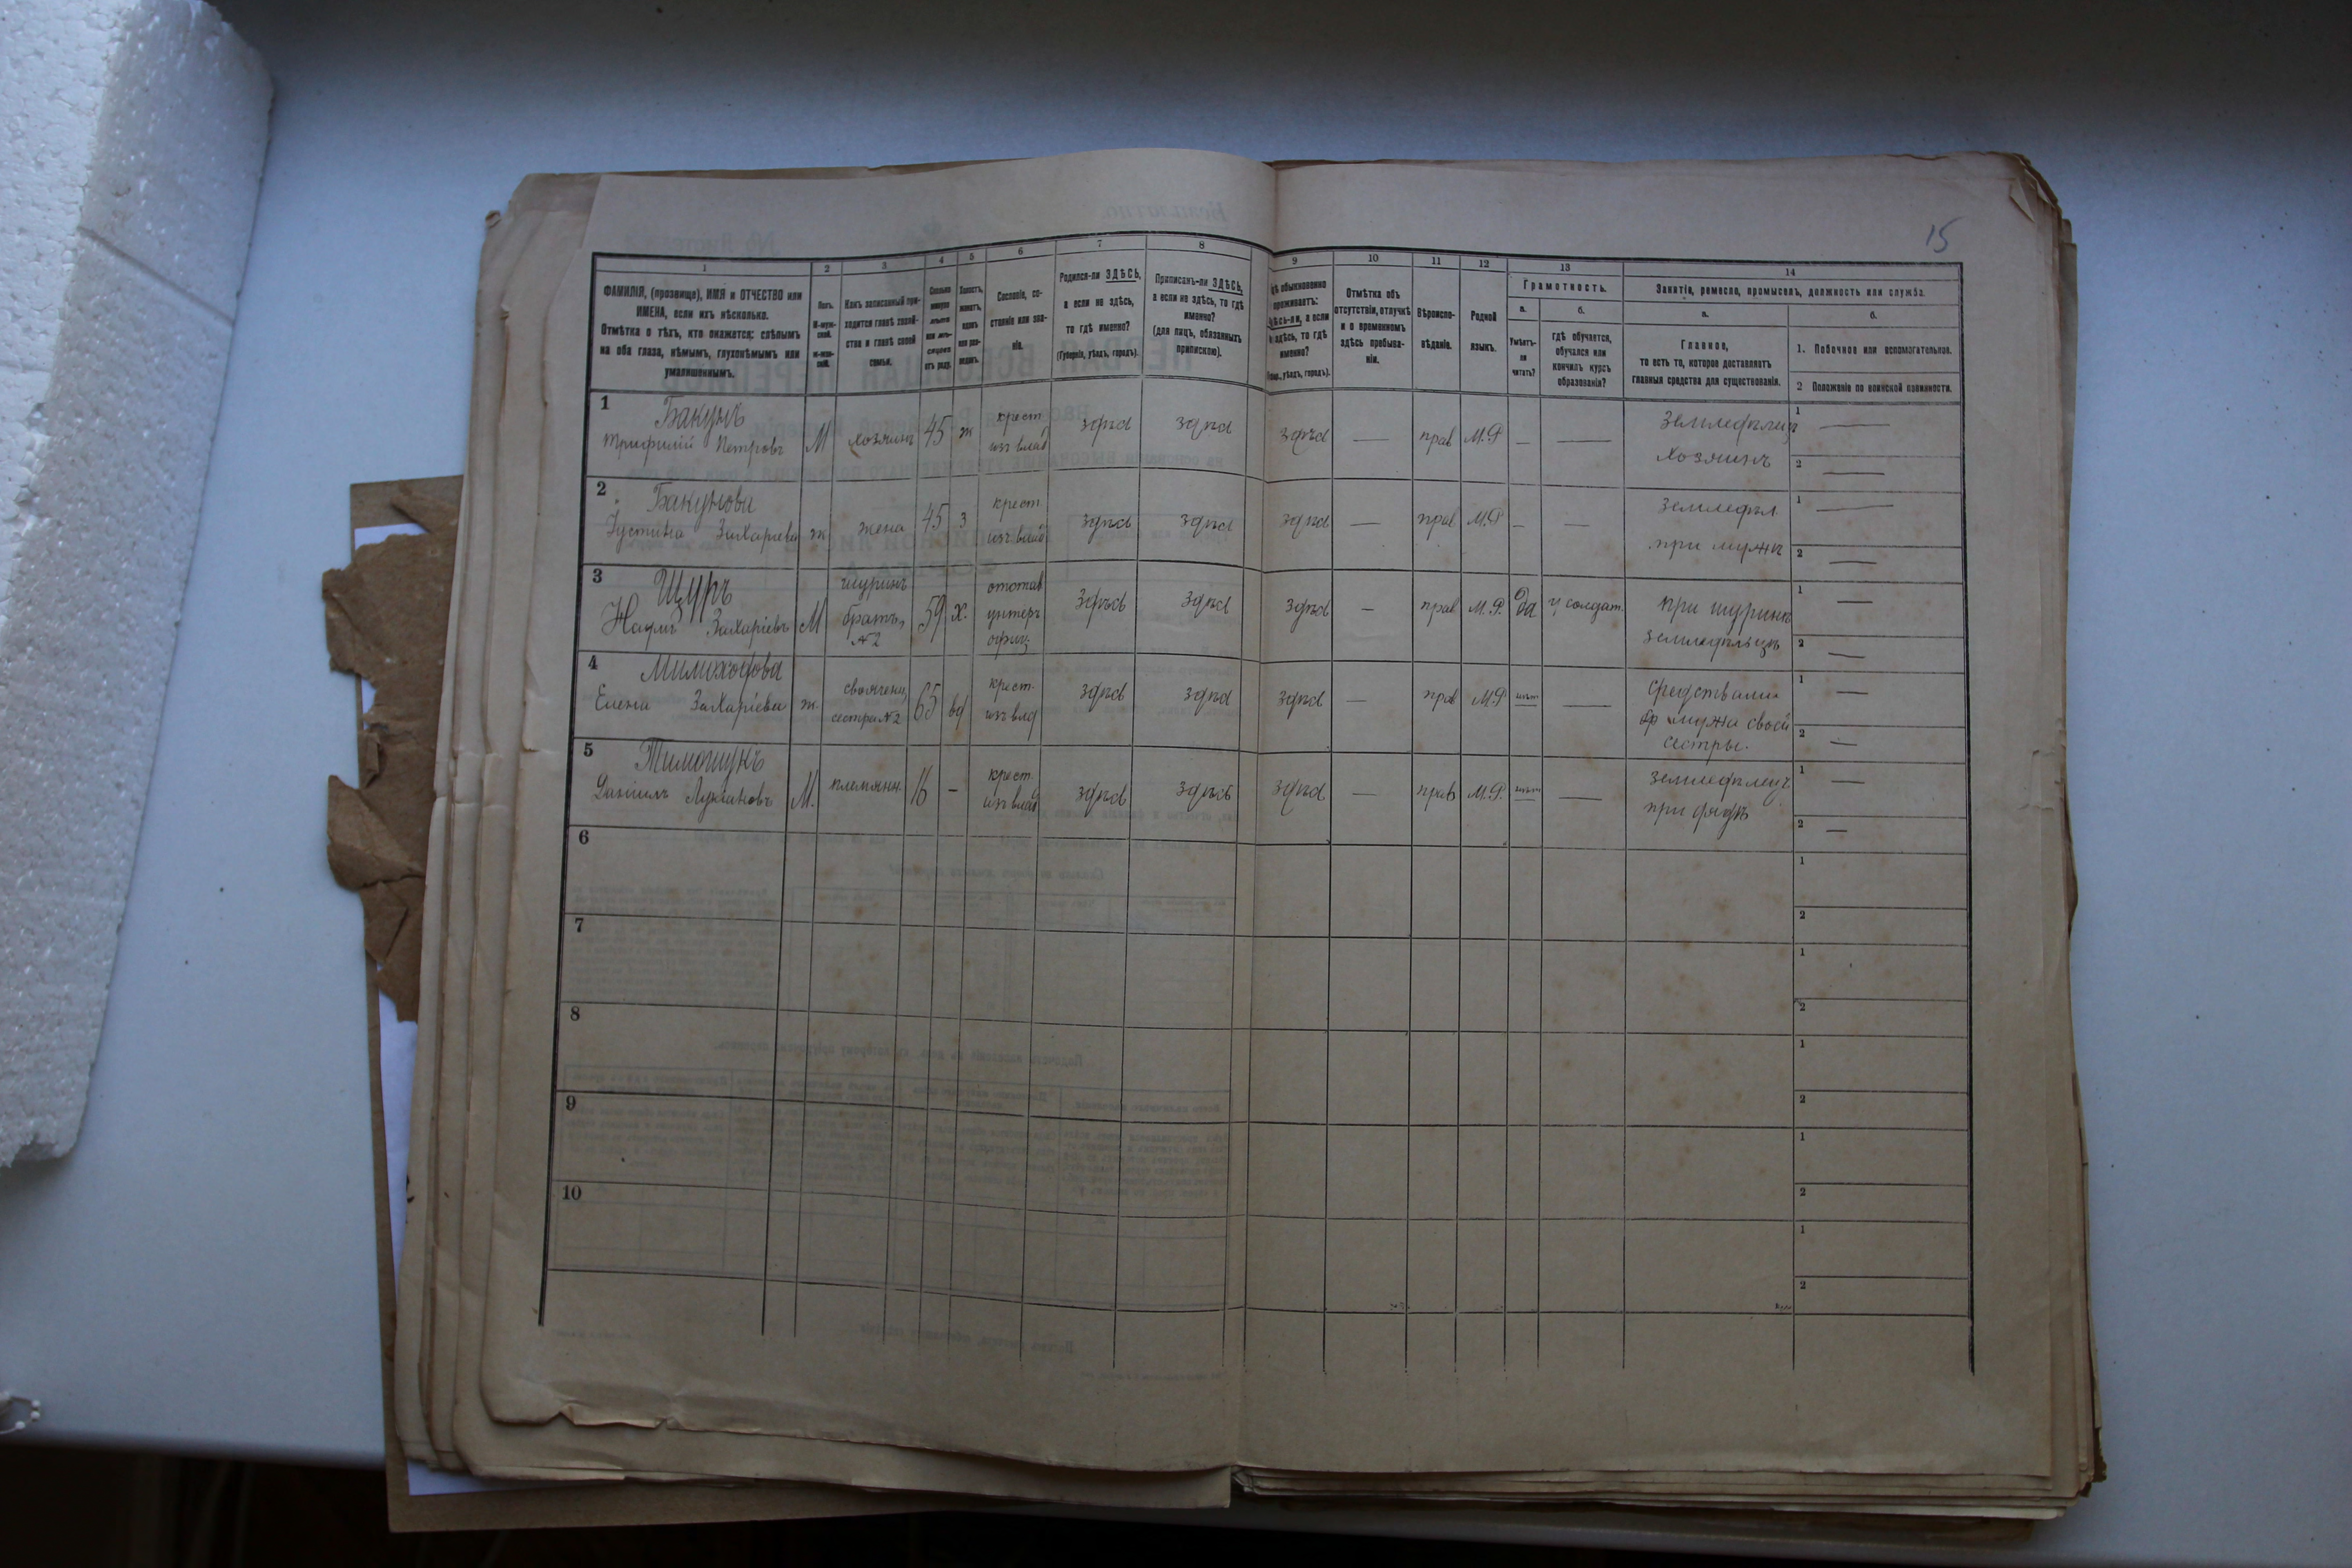 15
1 2 3 4 5 6 7 8 9 10 11 12 13 14
ФАМИЛІЯ, (прозвище), ИМЯ и ОТЧЕСТВО или
ИМЕНА, если ихъ нѣсколько.
Отмѣтка о тѣхъ, кто окажется: слѣпымъ
на оба глаза, нѣмымъ, глухонѣмымъ или
умалишеннымъ.
Полъ.
М-муж-
ской.
ж-жен-
скій.
Какъ записанный при-
ходится главѣ хозяй-
ства и главѣ своей
семьи.
Сколько
минуло
лѣтъ
или мѣ-
сяцевъ
отъ роду.
Холостъ,
женатъ,
вдовъ
или раз-
веденъ.
Сословіе, со-
стояніе или зва-
ніе.
Родился-ли ЗДѢСЬ,
а если не здѣсь,
то гдѣ именно?
(Губернія, уѣздъ, городъ).
Приписанъ-ли ЗДѢСЬ,
а если не здѣсь, то гдѣ
именно?
(для лицъ, обязанныхъ
припискою).
обыкновенно
проживаетъ:
а если
здѣсь, то гдѣ
именно?
уѣздъ, городъ).
Отмѣтка объ
отсутствіи, отлучкѣ
и о временномъ
здѣсь пребыва-
ніи.
Вѣроиспо-
вѣданіе.
Родной
языкъ.
Грамотность.
а.
Умѣетъ-
ли
читать?
б.
гдѣ обучается,
обучался или
кончилъ курсъ
образованія?
Занятіе, ремесло, промыселъ, должность или служба.
а.
Главное,
то есть то, которое доставляетъ
главныя средства для существованія.
б.
1. Побочное или вспомогательное.
2 Положеніе по воинской повинности.
1 Бакунъ
Трифилій Петровъ М хозяинъ 45 ж крест. изъ влад здѣсь здѣсь здѣсь — прав М.Р — — Земледѣлец хозяинъ 1 — 2 —
2 Бакунова
Іустина Захаріева ж жена 45 з крест. изъ влад здѣсь здѣсь здѣсь — прав М.Р — — земледѣл. при мужѣ 1 — 2 —
3 Щуръ
Наумъ Захаріевъ М шуринъ братъ №2 59 х. отстав унтеръ офиц. здѣсь здѣсь здѣсь — прав М.Р. да у солдат. при шуринѣ земледѣлецъ 1 — 2 —
4
Елена Захаріева ж. своячениц сестра №2 65 вд крест. изъ влд здѣсь здѣсь здѣсь — прав М.Р нѣт — средствами мужа своей сестры. 1 — 2 —
5 Тимощукъ
Даніилъ Лукіановъ М. племянн. 16 — крест. изъ влад здѣсь здѣсь здѣсь — прав М.Р. нѣт — земледѣлец при дядѣ 1 — 2 —
6 1 2
7 1 2
8 1 2
9 1 2
10 1 2